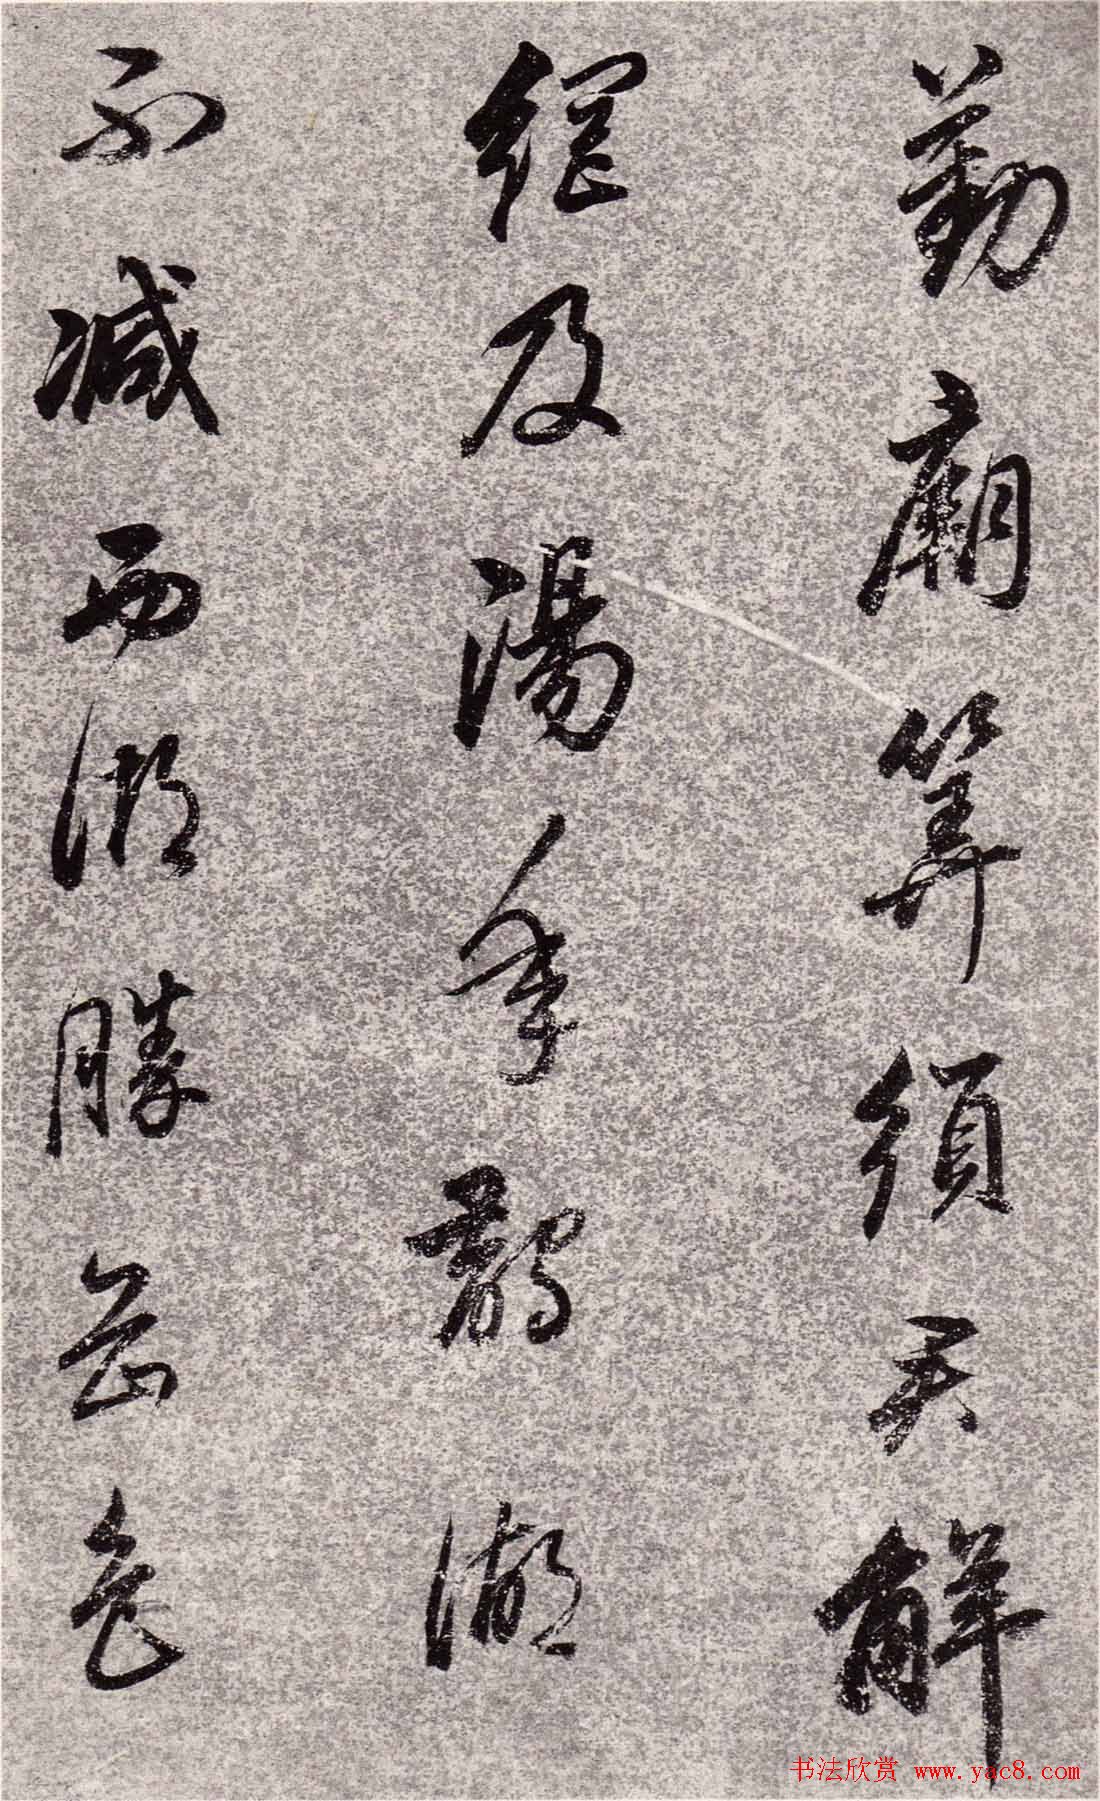 勤廟算須君解
網及湯年鵲湖
不減西湖勝岳色
书法欣赏 www.yac8.com